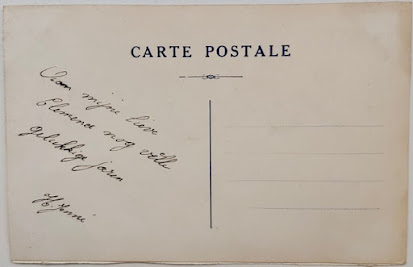 CARTE POSTALE
Aan mijne lieve
Clemence nog vèlle
gelukkige jaren